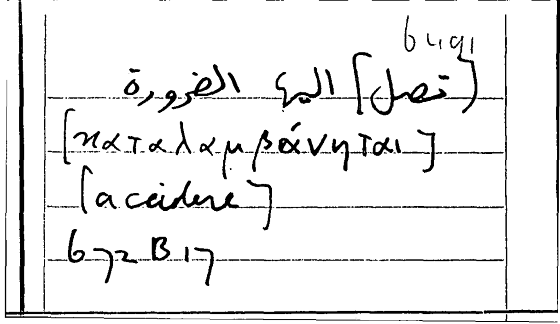 6491
[تصل] اليها الضرورة
[καταλαμβάνηται]
[accidere]
672 B 17